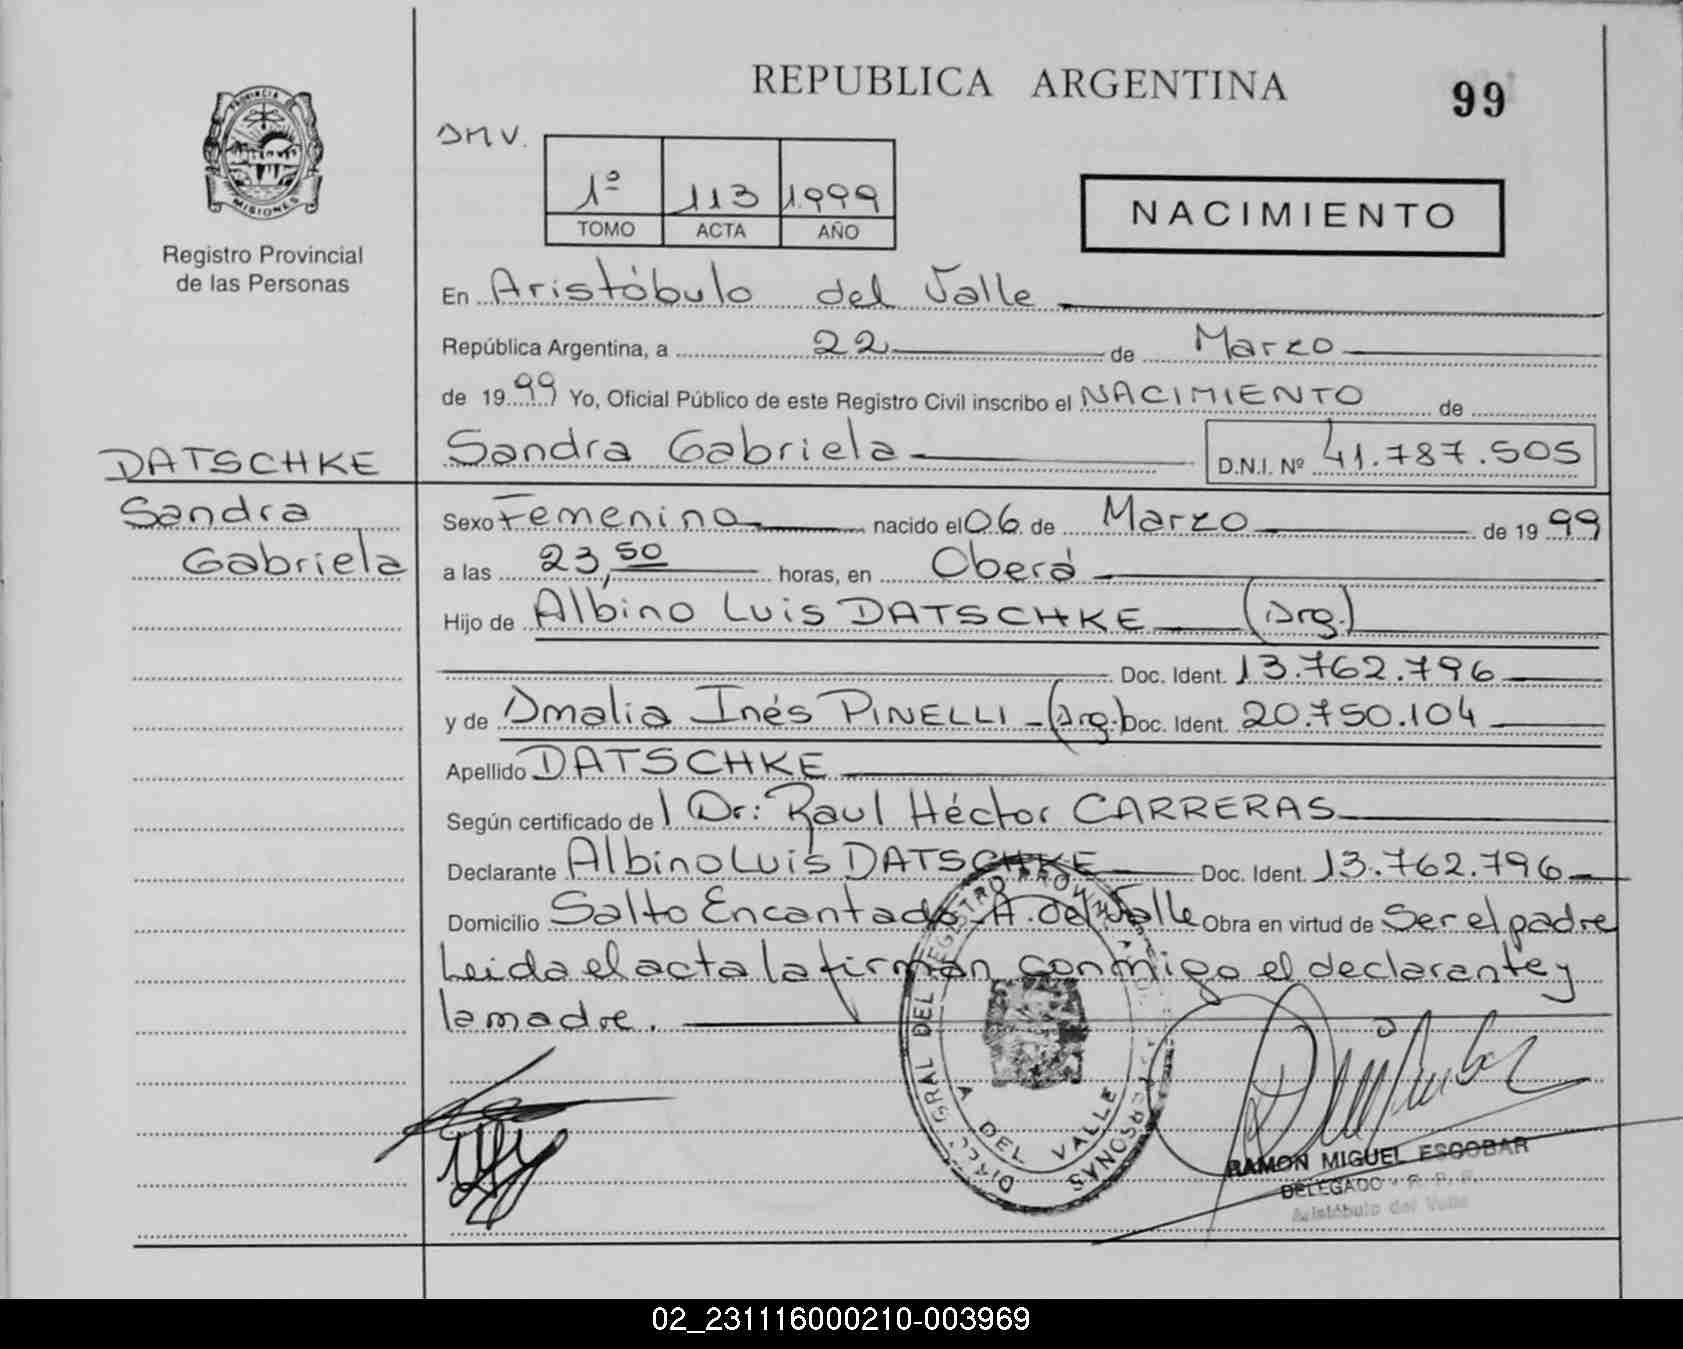 REPUBLICA ARGENTINA
99
PROVINCIA DE
MISIONES
Registro Provincial
de las Personas
DMV.
1º 113 1999
TOMO ACTA AÑO
NACIMIENTO
En Aristóbulo del Valle
República Argentina, a 22 de Marzo
de 1999 Yo, Oficial Público de este Registro Civil inscribo el NACIMIENTO de
DATSCHKE
Sandra
Gabriela
Sandra Gabriela D.N.I. Nº 41.787.505
Sexo Femenino nacido el 06 de Marzo de 1999
a las 23,50 horas, en Oberá
Hijo de Albino Luis DATSCHKE (Arg.)
Doc. Ident. 13.762.796
y de Amalia Inés PINELLI (Arg.) Doc. Ident. 20.750.104
Apellido DATSCHKE
Según certificado del Dr: Raul Héctor CARRERAS
Declarante Albino Luis DATSCHKE Doc. Ident. 13.762.796
Domicilio Salto Encantado A. del Valle Obra en virtud de Ser el padre
Leida el acta la firman conmigo el declarante y
la madre.
DIREC. GRAL DEL REGISTRO PROVINCIAL PERSONAS
A DEL VALLE
RAMON MIGUEL ESCOBAR
DELEGADO - R. P. P.
Aristóbulo del Valle
02_231116000210-003969